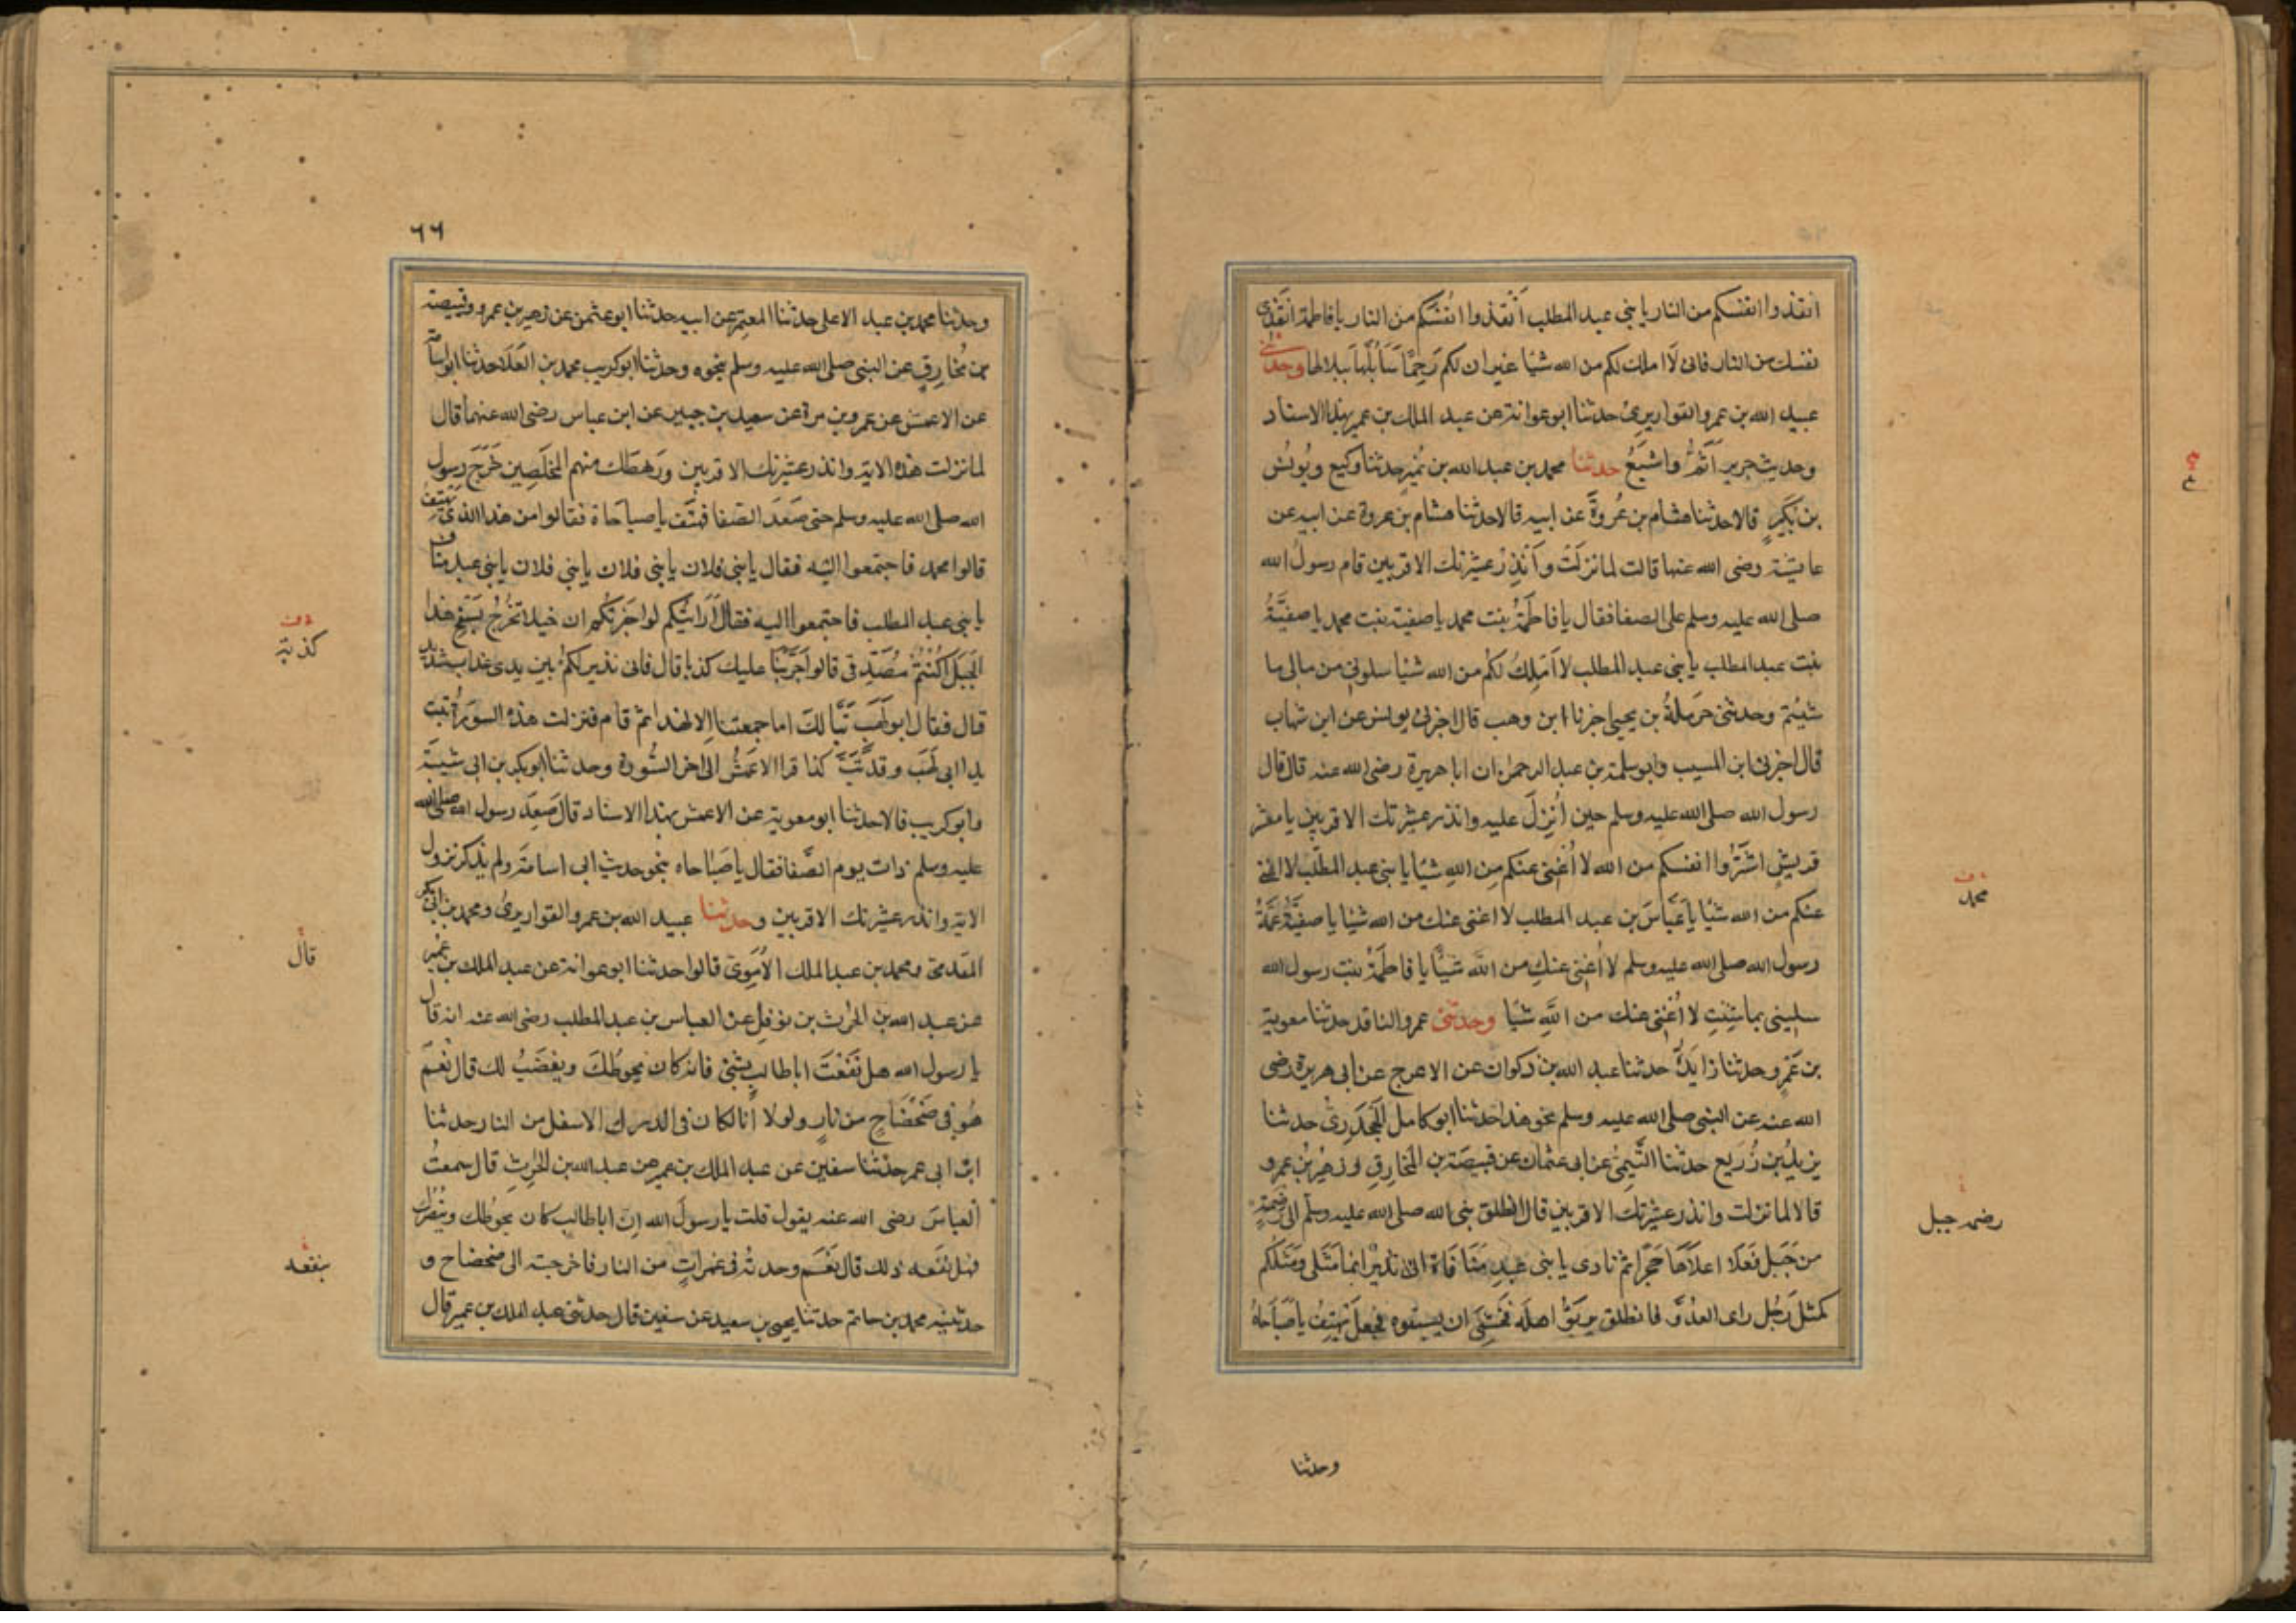 انقذوا انفسكم من النار يا بني عبد المطلب أنقذوا انفسكم من النار يا فاطمة انقذي
نفسك من النار فاني لا املك لكم من الله شيًا غير ان لكم رَحِمًا سَاَبُلُّهَا ببلالها وحدثني
عبيد الله بن عمر القواريري حدثنا ابو عوانة عن عبد الملك بن عمير بهذا الاسناد
وحديث جرير اَتَمُّ واشبَعُ حدثنا محمد بن عبد الله بن نُمَيرٍ حدثنا وكيع ويُونُس
بن بُكَيرٍ قالا حدثنا هشام بن عُروَةَ عن ابيه قالا حدثنا هشام بن عروة عن ابيه عن
عايشة رضى الله عنها قالت لما نزلَتْ وَاَنْذِرْ عشيرتك الاقربين قام رسولُ الله
صلى الله عليه وسلم على الصفا فقال يا فاطمَةُ بنت محمد يا صفية بنت محمد يا صفيَّةُ
بنت عبد المطلب يا بني عبد المطلب لا اَمْلِكُ لكُم من الله شيْا سلوني من مالي ما
شِيْتم وحدثني حَرمَلَةُ بن يحيى اخبرنا ابن وهب قال اخبرني يونس عن ابن شهاب
قال اخبرني ابن المسيب وابو سلمة بن عبد الرحمن ان ابا هريرة رضى الله عنه قال قال
رسول الله صلى الله عليه وسلم حين اُنْزِلَ عليه وانذر عشيرتك الاقربين يا معشر
قريشٍ اشتَرُوا انفسكم من الله لا اُغْنِي عنكم مِن اللهِ شيًا يا بني عبد المطّلب لا اغني
عنكم من الله شيًا يا عَبَّاسَ بن عبد المطلب لا اغنى عنك من الله شيْا يا صفيَّةُ عَمَّةُ
رسول الله صلى الله عليه وسلم لا اُغْنِي عنكِ من الله شَيًْا يا فاطمَةُ بنت رسول الله
سليني بما شِئتِ لا اُغْنِي عنك من اللَّهِ شيًا وحدثنى عمرو الناقد حدثنا معوية
بن عَمْرٍو حدثنا زايدَةُ حدثنا عبد الله بن ذكوان عن الاعرج عن ابي هريرة رضى
الله عنه عن النبي صلى الله عليه وسلم نحو هذا حدثنا ابو كامل الجَحْدَرِيُّ حدثنا
يزيدُ بن زُرَيع حدثنا التَّيمِيُّ عن ابي عثمان عن قبيصَة بن المُخَارِقِ وزهَيْرِ بنِ عمرو
قالا لما نزلت وانذر عشيرتك الاقربين قال انطلق نبي الله صلى الله عليه وسلم الى رَضْمَةٍ
من جَبَلٍ فَعَلَا اعلَاهَا حَجَرًا ثم نادى يا بني عَبدِ مَنَافَاهْ اني نذيْرٌ انما مَثَلي ومَثَلُكُم
كمثل رَجُل راى العدُوَّ فانطلق يربَؤُ اهلَه فَخَشِيَ ان يسبقوه فجعَلَ يَهْتِفُ يا صَبَاحَاهُ
وحدثنا
محمد
رضمه جبل
٦٦
وحدثنا محمد بن عبد الاعلى حدثنا المعتمر عن ابيه حدثنا ابو عثمن عن زهير بن عمرو وقبيصة
بن مُخَارِقٍ عن النبي صلى الله عليه وسلم بنحوه وحدثنا ابو كريب محمد بن العَلَا حدثنا ابو اسامة
عن الاعمش عن عمرو بن مرة عن سعيد بن جبير عن ابن عباس رضى الله عنهما قال
لما نزلت هذه الاية وانذر عشيرتك الاقربين ورَهطَكَ منهم المُخلَصِين خَرَجَ رسول
الله صلى الله عليه وسلم حتى صَعَدَ الصَفا فهَتَف يا صباحَاهْ فقالوا من هذا الذي يَهْتِفُ
قالوا محمد فاجتمعوا اليه فقال يا بني فلان يا بني فلان يا بني فلان يا بني عبد مناف
يا بني عبد المطلب فاجتمعوا اليه فقال أَرَايتُكم لو اخبَرتكُم ان خيلا تَخْرُجُ بسَفْحِ هذا
الجَبَل اكُنْتُمْ مُصَدِّقِي قالوا ما جَرَّبْنَا عليك كذبا قال فاني نذير لكُم بين يدى عذاب شديد
قال فقال ابو لَهَبٍ تَبًّا لكَ اما جمعتنا اِلا لهذا ثم قام فنزلت هذه السوَرةُ تبت
يدا ابى لَهَب وقد تَّبَّ كذا قرا الاعمَشُ الى اخر السُّورة وحدثنا ابو بكر بن ابى شيبَة
وابو كريب قالا حدثنا ابو معوية عن الاعمش بهذا الاسناد قال صَعِدَ رسول الله صلى الله
عليه وسلم ذات يوم الصَّفا فقال يا صَبَاحاه بنحو حديث ابي اسامَةَ ولم يذكر نزول
الاية وانذر عشيرتك الاقربين وحدثنا عبيد الله بن عمر القواريرى ومحمد بن ابى بكر
المقدمي ومحمد بن عبد الملك الأمَوِيّ قالوا حدثنا ابو عوانة عن عبد الملك بن عُمَيْر
عن عبد الله بن الحٰرث بن نوفل عن العباس بن عبد المطلب رضى الله عنه انه قال
يا رسول الله هل نَفَعْتَ ابا طالبٍ بشَئٍ فانه كان يحوطكَ ويغضَبُ لك قال نَعَمْ
هُو في ضَحْضَاحٍ من نارٍ ولولا أنا لكان في الدرك الاسفل من النار حدثنا
ابن ابى عمر حدثنا سفين عن عبد الملك بن عمير عن عبد الله بن الحٰرِثِ قال سمعتُ
العباسَ رضى الله عنه يقول قلت يا رسولَ الله اِنَ ابا طالب كان يحوطُك وينْصُرُك
فهل نفَعه ذلك قال نَعَم وجدته في غمراتٍ من النار فاخرجته الى ضحضاح و
حدثنيه محمد بن حاتم حدثنا يحيى بن سعيد عن سفين قال حدثني عبد الملك بن عمير قال
كذبة
قال
ينفعه